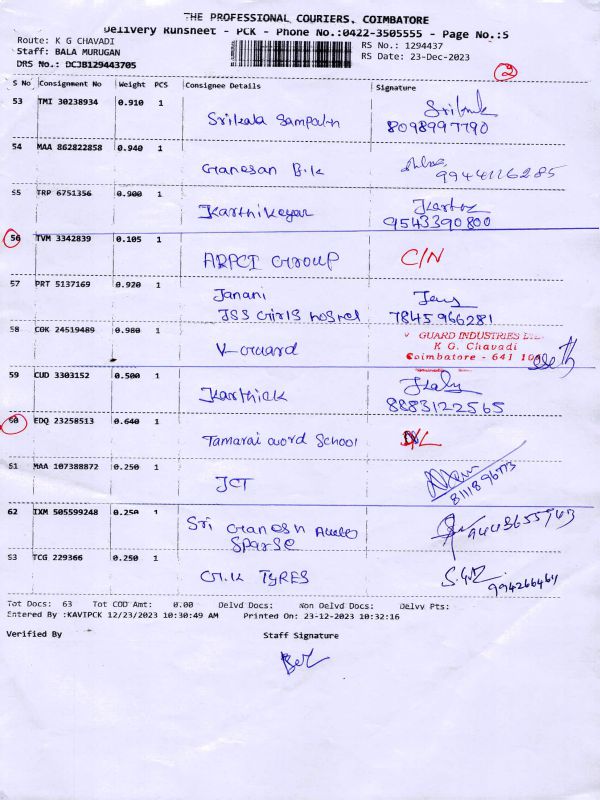 THE PROFESSIONAL COURIERS, COIMBATORE
Delivery Runsheet - PCK - Phone No.:0422-3505555 - Page No.:5
Route: K G CHAVADI
RS No.: 1294437
Staff: BALA MURUGAN
RS Date: 23-Dec-2023
DRS No.: DCJB129443705
2
S No Consignment No Weight PCS Consignee Details Signature
53 TMI 30238934 0.910 1
Srikala Sampath
8098997790
54 MAA 862822858 0.940 1
Ganesan B.K
9944116285
55 TRP 6751356 0.900 1
Karthikeyan
9543390800
56 TVM 3342839 0.105 1
ARPCI Group C/N
57 PRT 5137169 0.920 1
Janani
JSS Girls hostel 7845966281
58 COK 24519489 0.980 1
V-Guard
V GUARD INDUSTRIES LTD
K G. Chavadi
Coimbatore - 641 10
59 CUD 3303152 0.500 1
Karthick
8883122565
60 EDQ 23258513 0.640 1
Tamarai word School D/L
51 MAA 107388872 0.250 1
JCT
8111896773
62 IXM 505599248 0.250 1
Sri Ganesh Auto
Sparse
9443655943
53 TCG 229366 0.250 1
G.K TYRES
994266464
Tot Docs: 63 Tot COD Amt: 0.00 Delvd Docs: Non Delvd Docs: Delvy Pts:
Entered By :KAVIPCK 12/23/2023 10:30:49 AM Printed On: 23-12-2023 10:32:16
Verified By Staff Signature